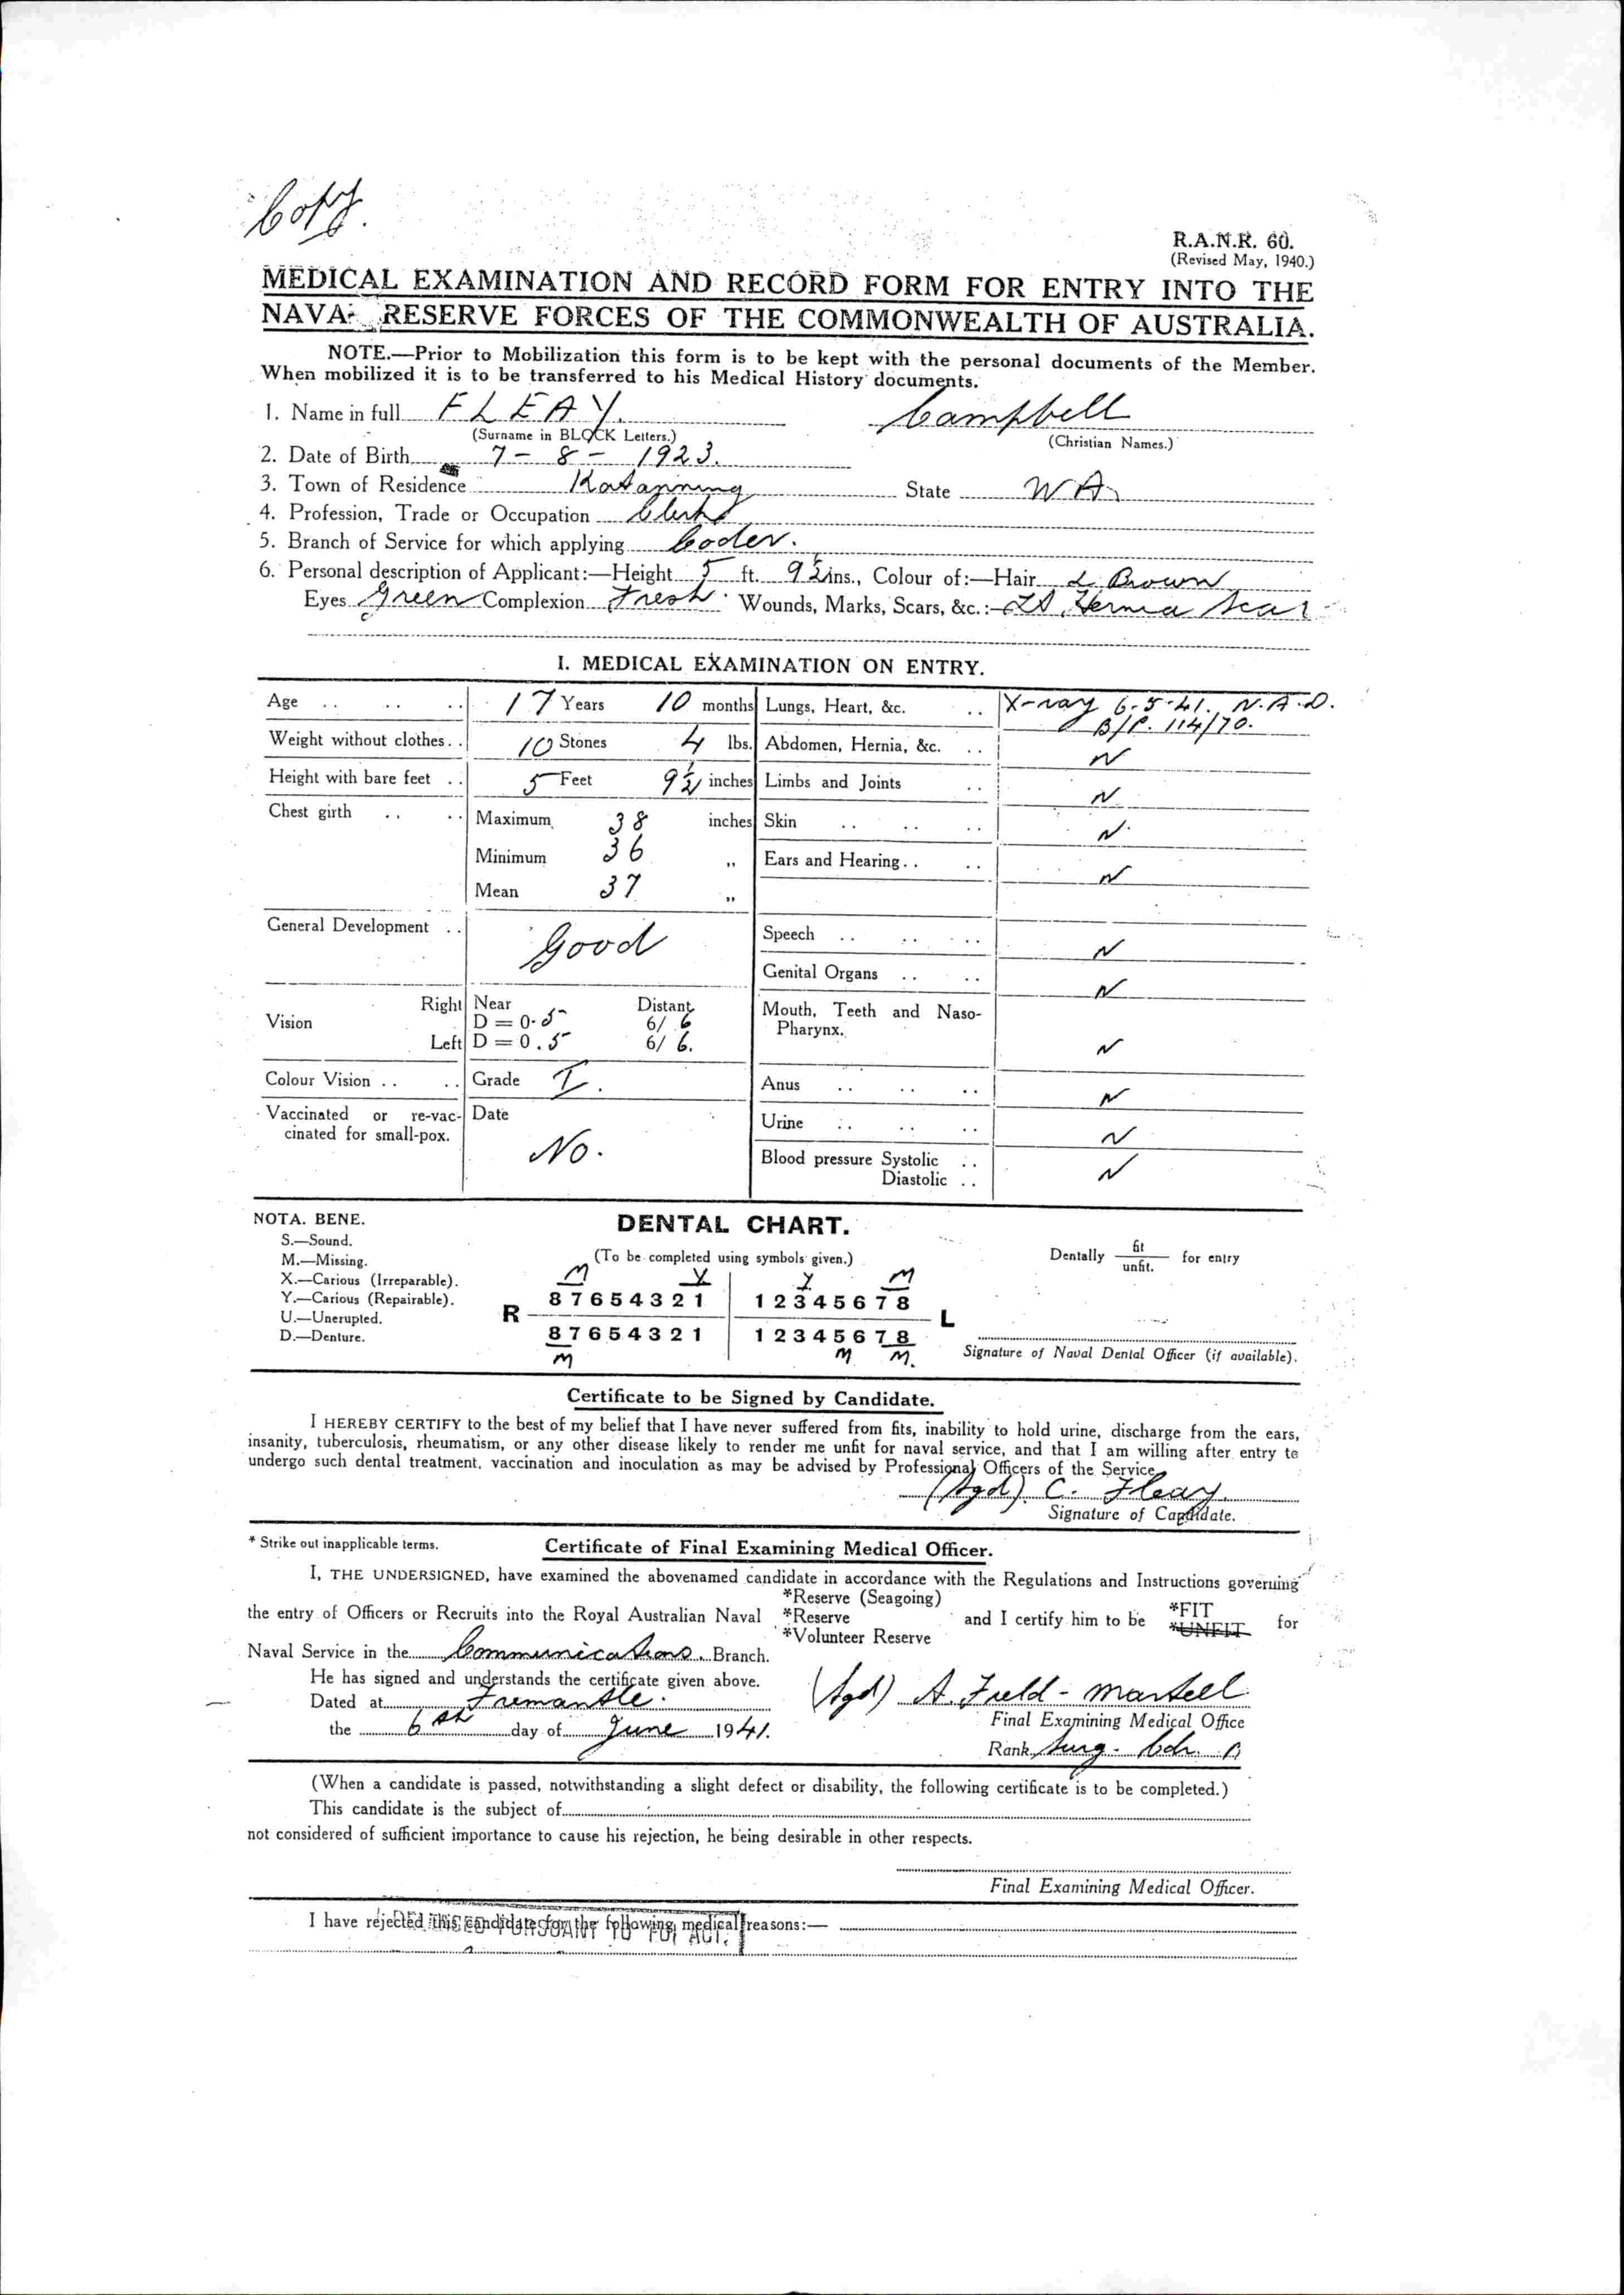 Copy.
R.A.N.R. 60.
(Revised May, 1940.)
MEDICAL EXAMINATION AND RECORD FORM FOR ENTRY INTO THE
NAVAL RESERVE FORCES OF THE COMMONWEALTH OF AUSTRALIA.
NOTE.—Prior to Mobilization this form is to be kept with the personal documents of the Member.
When mobilized it is to be transferred to his Medical History documents.
1. Name in full FLEAY. Campbell
(Surname in BLOCK Letters.) (Christian Names.)
2. Date of Birth 7 - 8 - 1923.
3. Town of Residence Katanning State WA
4. Profession, Trade or Occupation Clerk
5. Branch of Service for which applying Coder.
6. Personal description of Applicant:—Height 5 ft. 9½ ins., Colour of:—Hair L. Brown
Eyes Green Complexion Fresh Wounds, Marks, Scars, &c.:— Hernia Scar
I. MEDICAL EXAMINATION ON ENTRY.
Age .. .. .. 17 Years 10 months Lungs, Heart, &c. .. X-ray 6-5-41. N.A.D.
B/P. 114/70.
Weight without clothes.. 10 Stones 4 lbs. Abdomen, Hernia, &c. .. N
Height with bare feet .. 5 Feet 9½ inches Limbs and Joints .. N
Chest girth .. .. Maximum 38 inches Skin .. .. .. N.
Minimum 36 ,, Ears and Hearing.. .. N
Mean 37 ,,
General Development .. Good Speech .. .. .. N
Genital Organs .. .. N
Vision Right Near D = 0.5 Distant 6/6 Mouth, Teeth and Naso-
Left D = 0.5 6/6. Pharynx. N
Colour Vision .. .. Grade I. Anus .. .. .. N
Vaccinated or re-vac- Date Urine .. .. .. N
cinated for small-pox. No. Blood pressure Systolic .. N
Diastolic ..
NOTA. BENE. DENTAL CHART.
S.—Sound.
M.—Missing. (To be completed using symbols given.) Dentally fit/unfit. for entry
X.—Carious (Irreparable). M Y Y M
Y.—Carious (Repairable). 8 7 6 5 4 3 2 1 1 2 3 4 5 6 7 8
U.—Unerupted. R L
D.—Denture. 8 7 6 5 4 3 2 1 1 2 3 4 5 6 7 8
M M M.
Signature of Naval Dental Officer (if available).
Certificate to be Signed by Candidate.
I HEREBY CERTIFY to the best of my belief that I have never suffered from fits, inability to hold urine, discharge from the ears,
insanity, tuberculosis, rheumatism, or any other disease likely to render me unfit for naval service, and that I am willing after entry to
undergo such dental treatment, vaccination and inoculation as may be advised by Professional Officers of the Service.
(Sgd). C. Fleay.
Signature of Candidate.
* Strike out inapplicable terms. Certificate of Final Examining Medical Officer.
I, THE UNDERSIGNED, have examined the abovenamed candidate in accordance with the Regulations and Instructions governing
*Reserve (Seagoing)
the entry of Officers or Recruits into the Royal Australian Naval *Reserve and I certify him to be *FIT *UNFIT for
*Volunteer Reserve
Naval Service in the Communications. Branch.
He has signed and understands the certificate given above.
Dated at Fremantle. (Sgd) A. Field-Martell
Final Examining Medical Office
the 6th day of June 1941.
Rank Surg-Cdr.
(When a candidate is passed, notwithstanding a slight defect or disability, the following certificate is to be completed.)
This candidate is the subject of
not considered of sufficient importance to cause his rejection, he being desirable in other respects.
Final Examining Medical Officer.
I have rejected this candidate for the following medical reasons:—
PURSUANT TO FOI ACT.